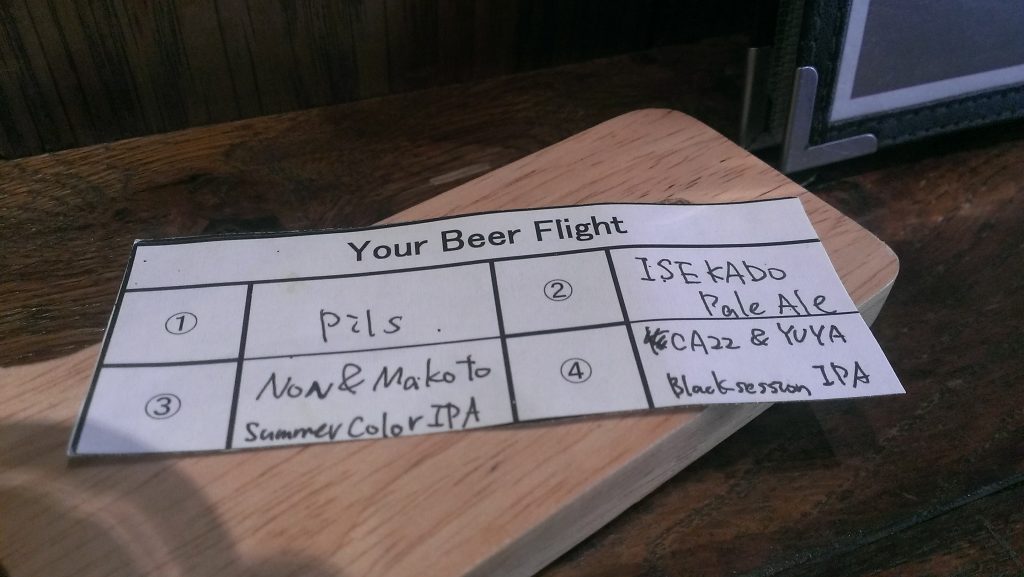 Your Beer Flight
① Pils.
② ISEKADO
Pale Ale
③ NON & Makoto
Summer Color IPA
④ CAzz & YUYA
Black session IPA